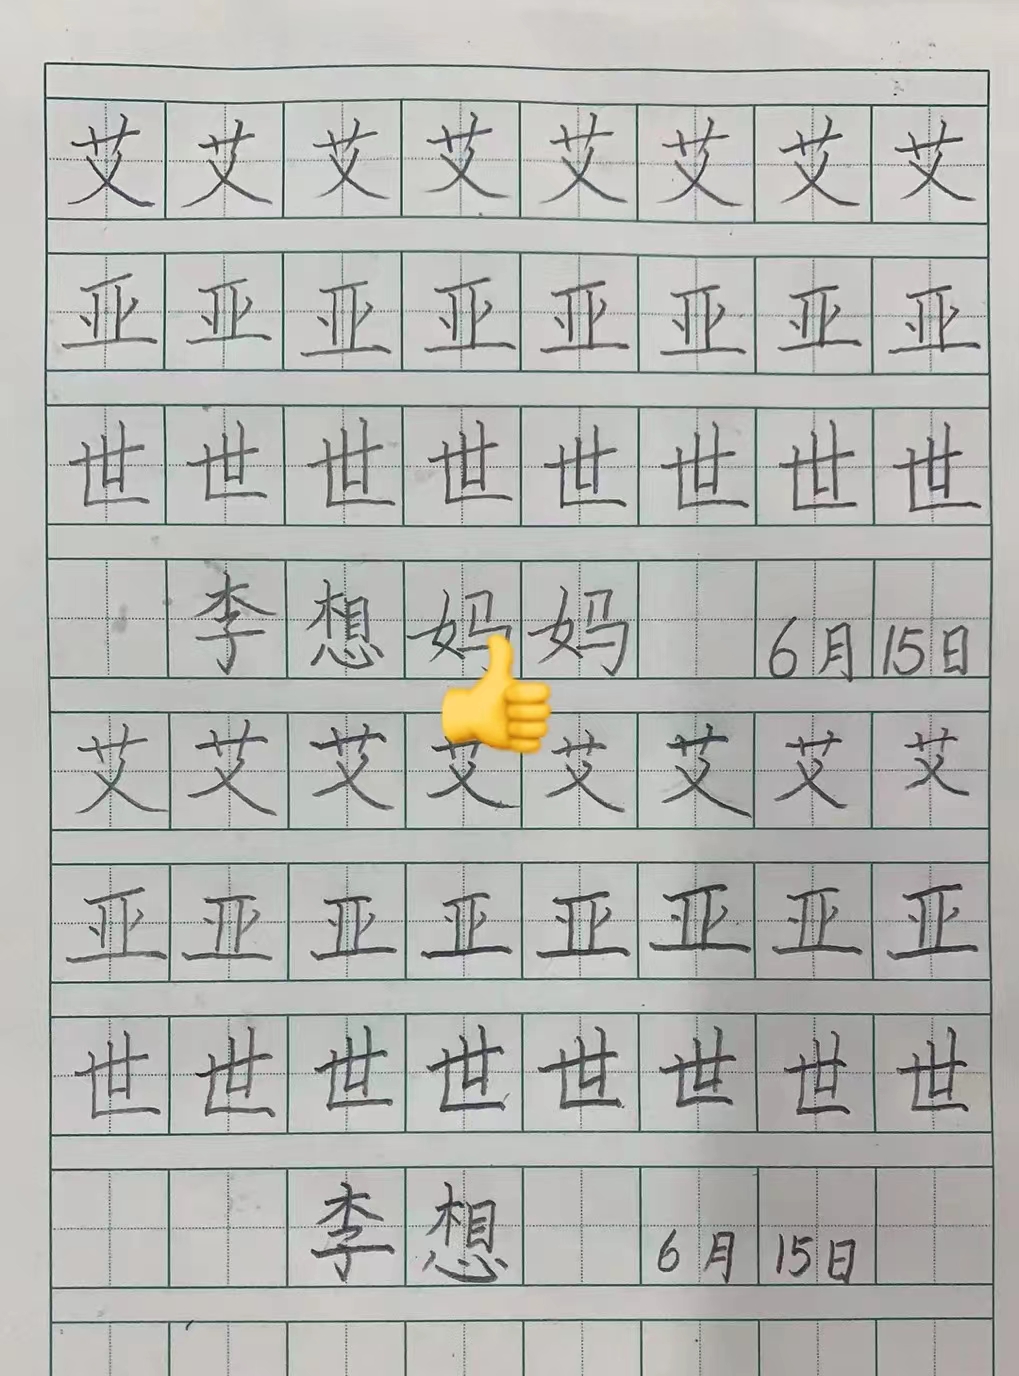 艾艾艾艾艾艾艾艾
亚亚亚亚亚亚亚亚
世世世世世世世世
李想妈妈 6月15日
艾艾艾艾艾艾艾艾
亚亚亚亚亚亚亚亚
世世世世世世世世
李想 6月15日